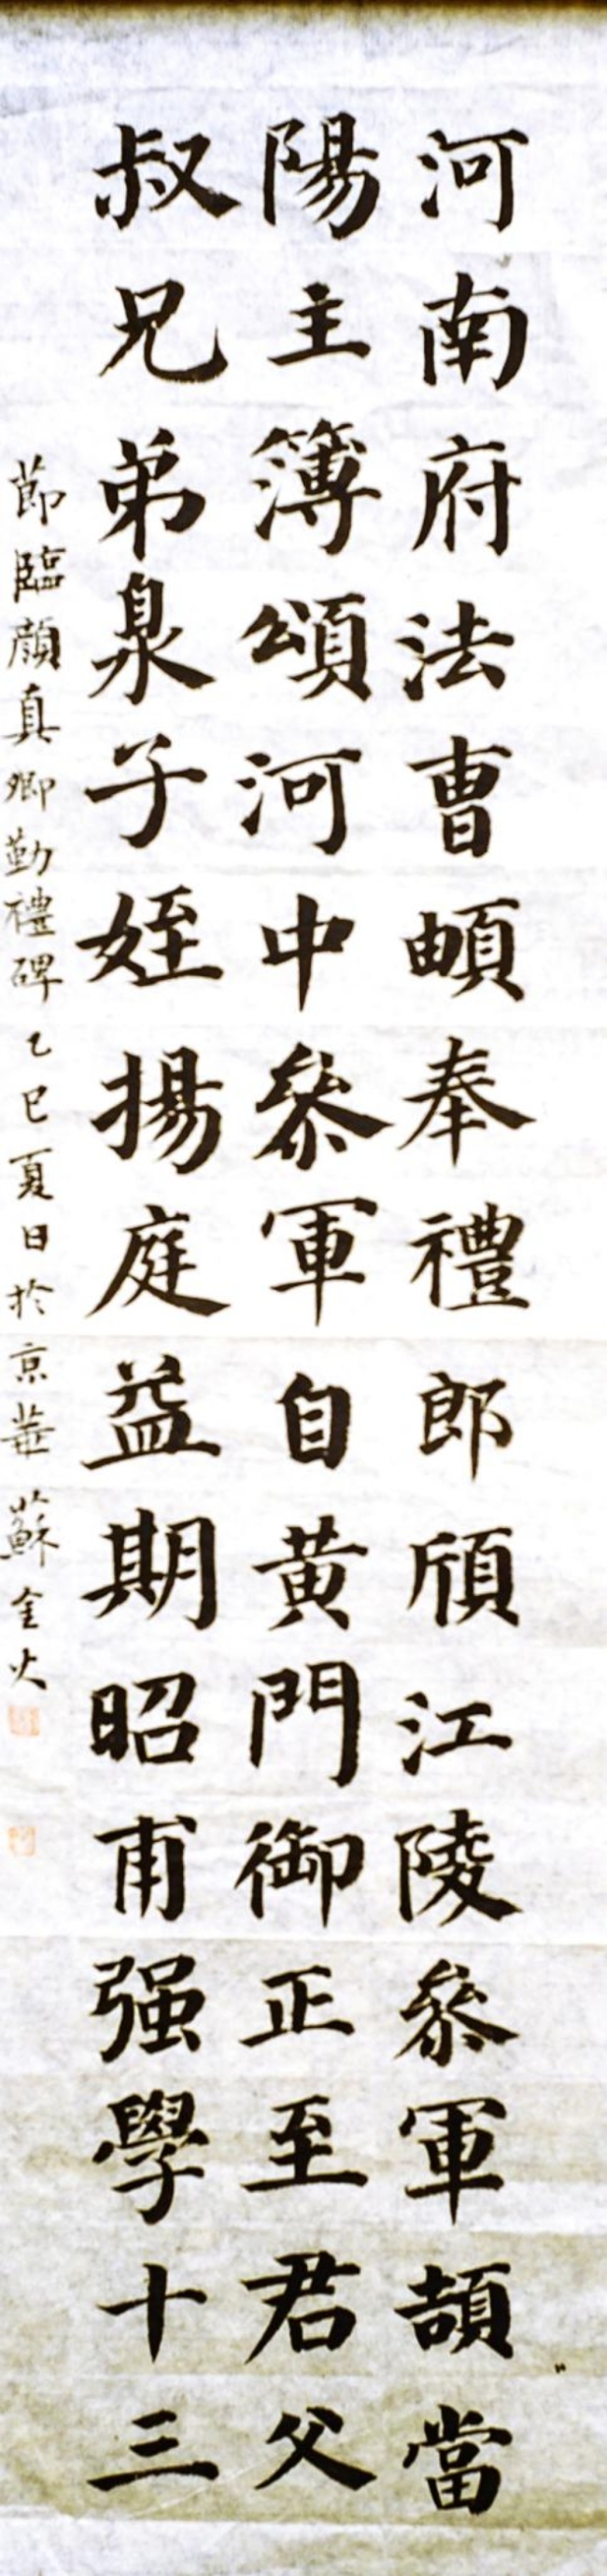 河南府法曹頔奉禮郎頎江陵參軍頡當
陽主簿頌河中參軍自黃門御正至君父
叔兄弟泉子姪揚庭益期昭甫强學十三
節臨顏真卿勤禮碑乙巳夏日於京華蘇金火